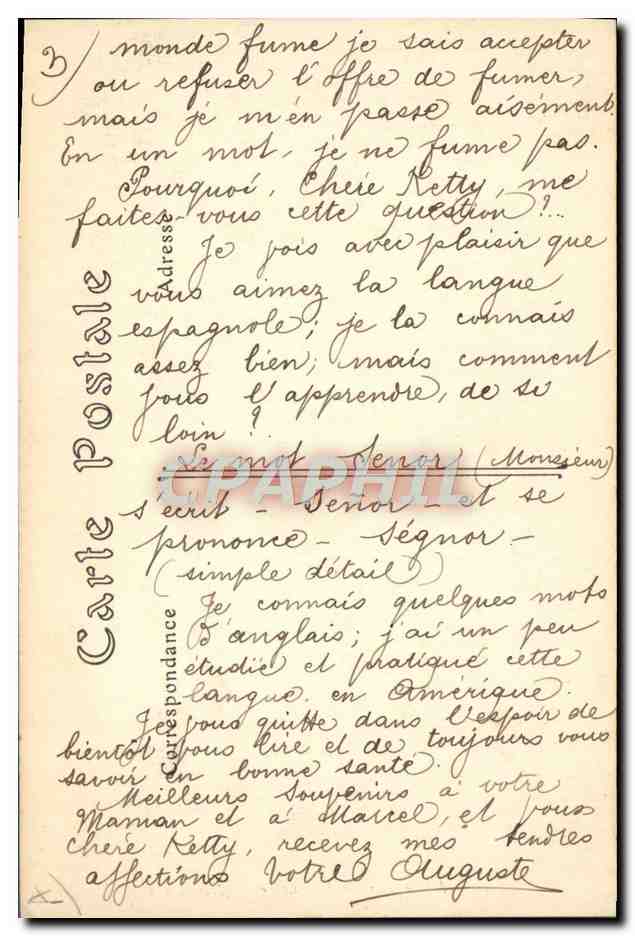 3) monde fume je sais accepter
ou refuser l'offre de fumer,
mais je m'en passe aisément.
En un mot, je ne fume pas.
Pourquoi, Chère Ketty, me
faites-vous cette question?...
Je vois avec plaisir que
vous aimez la langue
espagnole; je la connais
assez bien; mais comment
vous l'apprendre, de si
loin?
Le mot Senor (Monsieur)
s'écrit - Señor - et se
prononce - Ségnor -
(simple détail)
Je connais quelques mots
d'anglais; j'ai un peu
étudié et pratiqué cette
langue en Amérique.
Je vous quitte dans l'espoir de
bientôt vous lire et de toujours vous
savoir en bonne santé.
Meilleurs Souvenirs à votre
Maman et à Marcel, et vous
chère Ketty, recevez mes tendres
affections Votre Auguste
Carte Postale
Adresse
Correspondance
CPAPHIL
x-